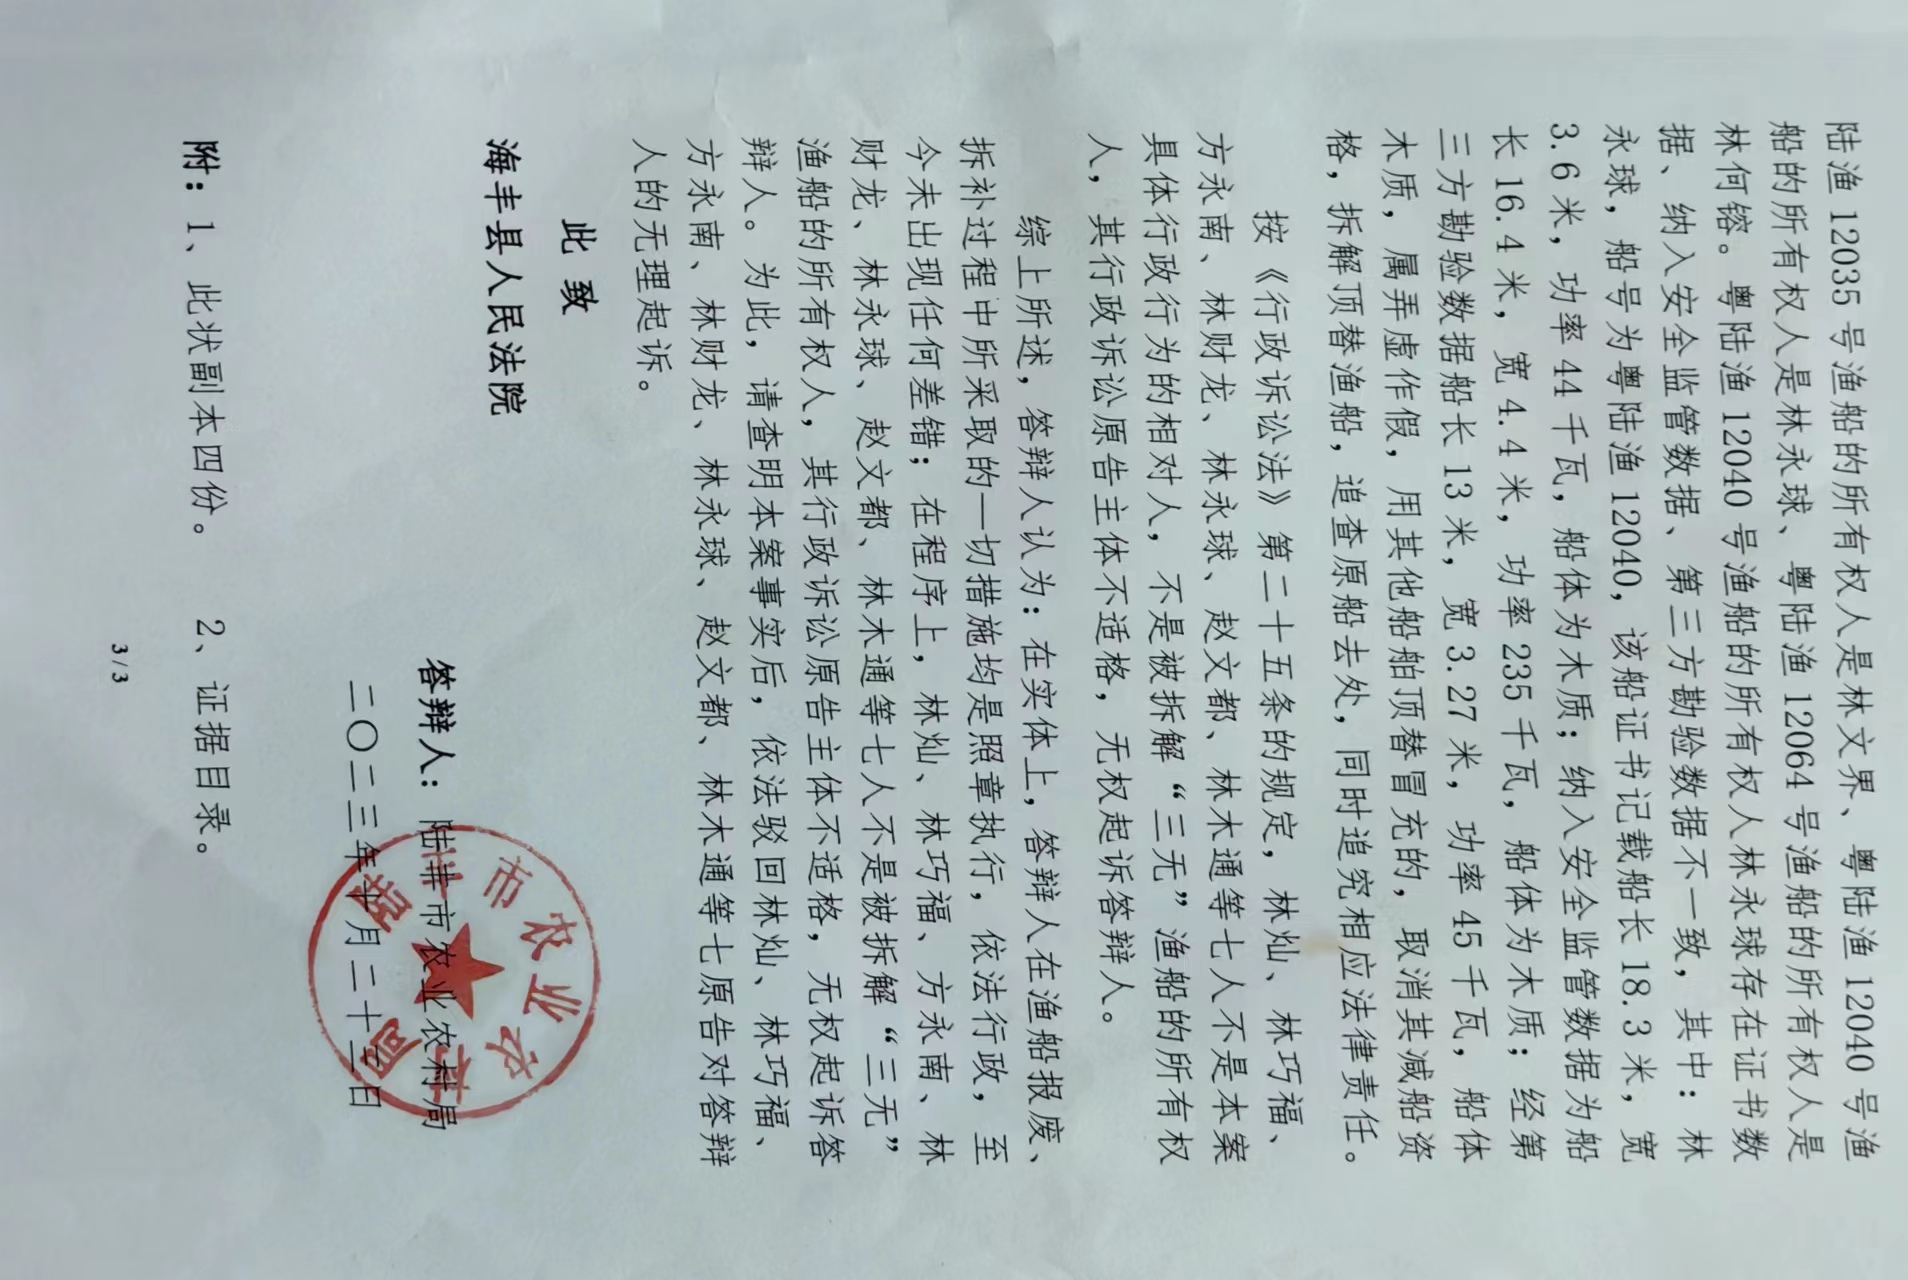 陆渔 12035 号渔船的所有权人是林文界、粤陆渔 12040 号渔
船的所有权人是林永球、粤陆渔 12064 号渔船的所有权人是
林何镕。粤陆渔 12040 号渔船的所有权人林永球存在证书数
据、纳入安全监管数据、第三方勘验数据不一致，其中：林
永球，船号为粤陆渔 12040，该船证书记载船长 18.3 米，宽
3.6 米，功率 44 千瓦，船体为木质；纳入安全监管数据为船
长 16.4 米，宽 4.4 米，功率 235 千瓦，船体为木质；经第
三方勘验数据船长 13 米，宽 3.27 米，功率 45 千瓦，船体
木质，属弄虚作假，用其他船舶顶替冒充的，取消其减船资
格，拆解顶替渔船，追查原船去处，同时追究相应法律责任。
按《行政诉讼法》第二十五条的规定，林灿、林巧福、
方永南、林财龙、林永球、赵文都、林木通等七人不是本案
具体行政行为的相对人，不是被拆解“三无”渔船的所有权
人，其行政诉讼原告主体不适格，无权起诉答辩人。
综上所述，答辩人认为：在实体上，答辩人在渔船报废、
拆补过程中所采取的一切措施均是照章执行，依法行政，至
今未出现任何差错；在程序上，林灿、林巧福、方永南、林
财龙、林永球、赵文都、林木通等七人不是被拆解“三无”
渔船的所有权人，其行政诉讼原告主体不适格，无权起诉答
辩人。为此，请查明本案事实后，依法驳回林灿、林巧福、
方永南、林财龙、林永球、赵文都、林木通等七原告对答辩
人的无理起诉。
此 致
海丰县人民法院
答辩人：陆丰市农业农村局
二〇二三年十月二十三日
附：1、此状副本四份。 2、证据目录。
3/3